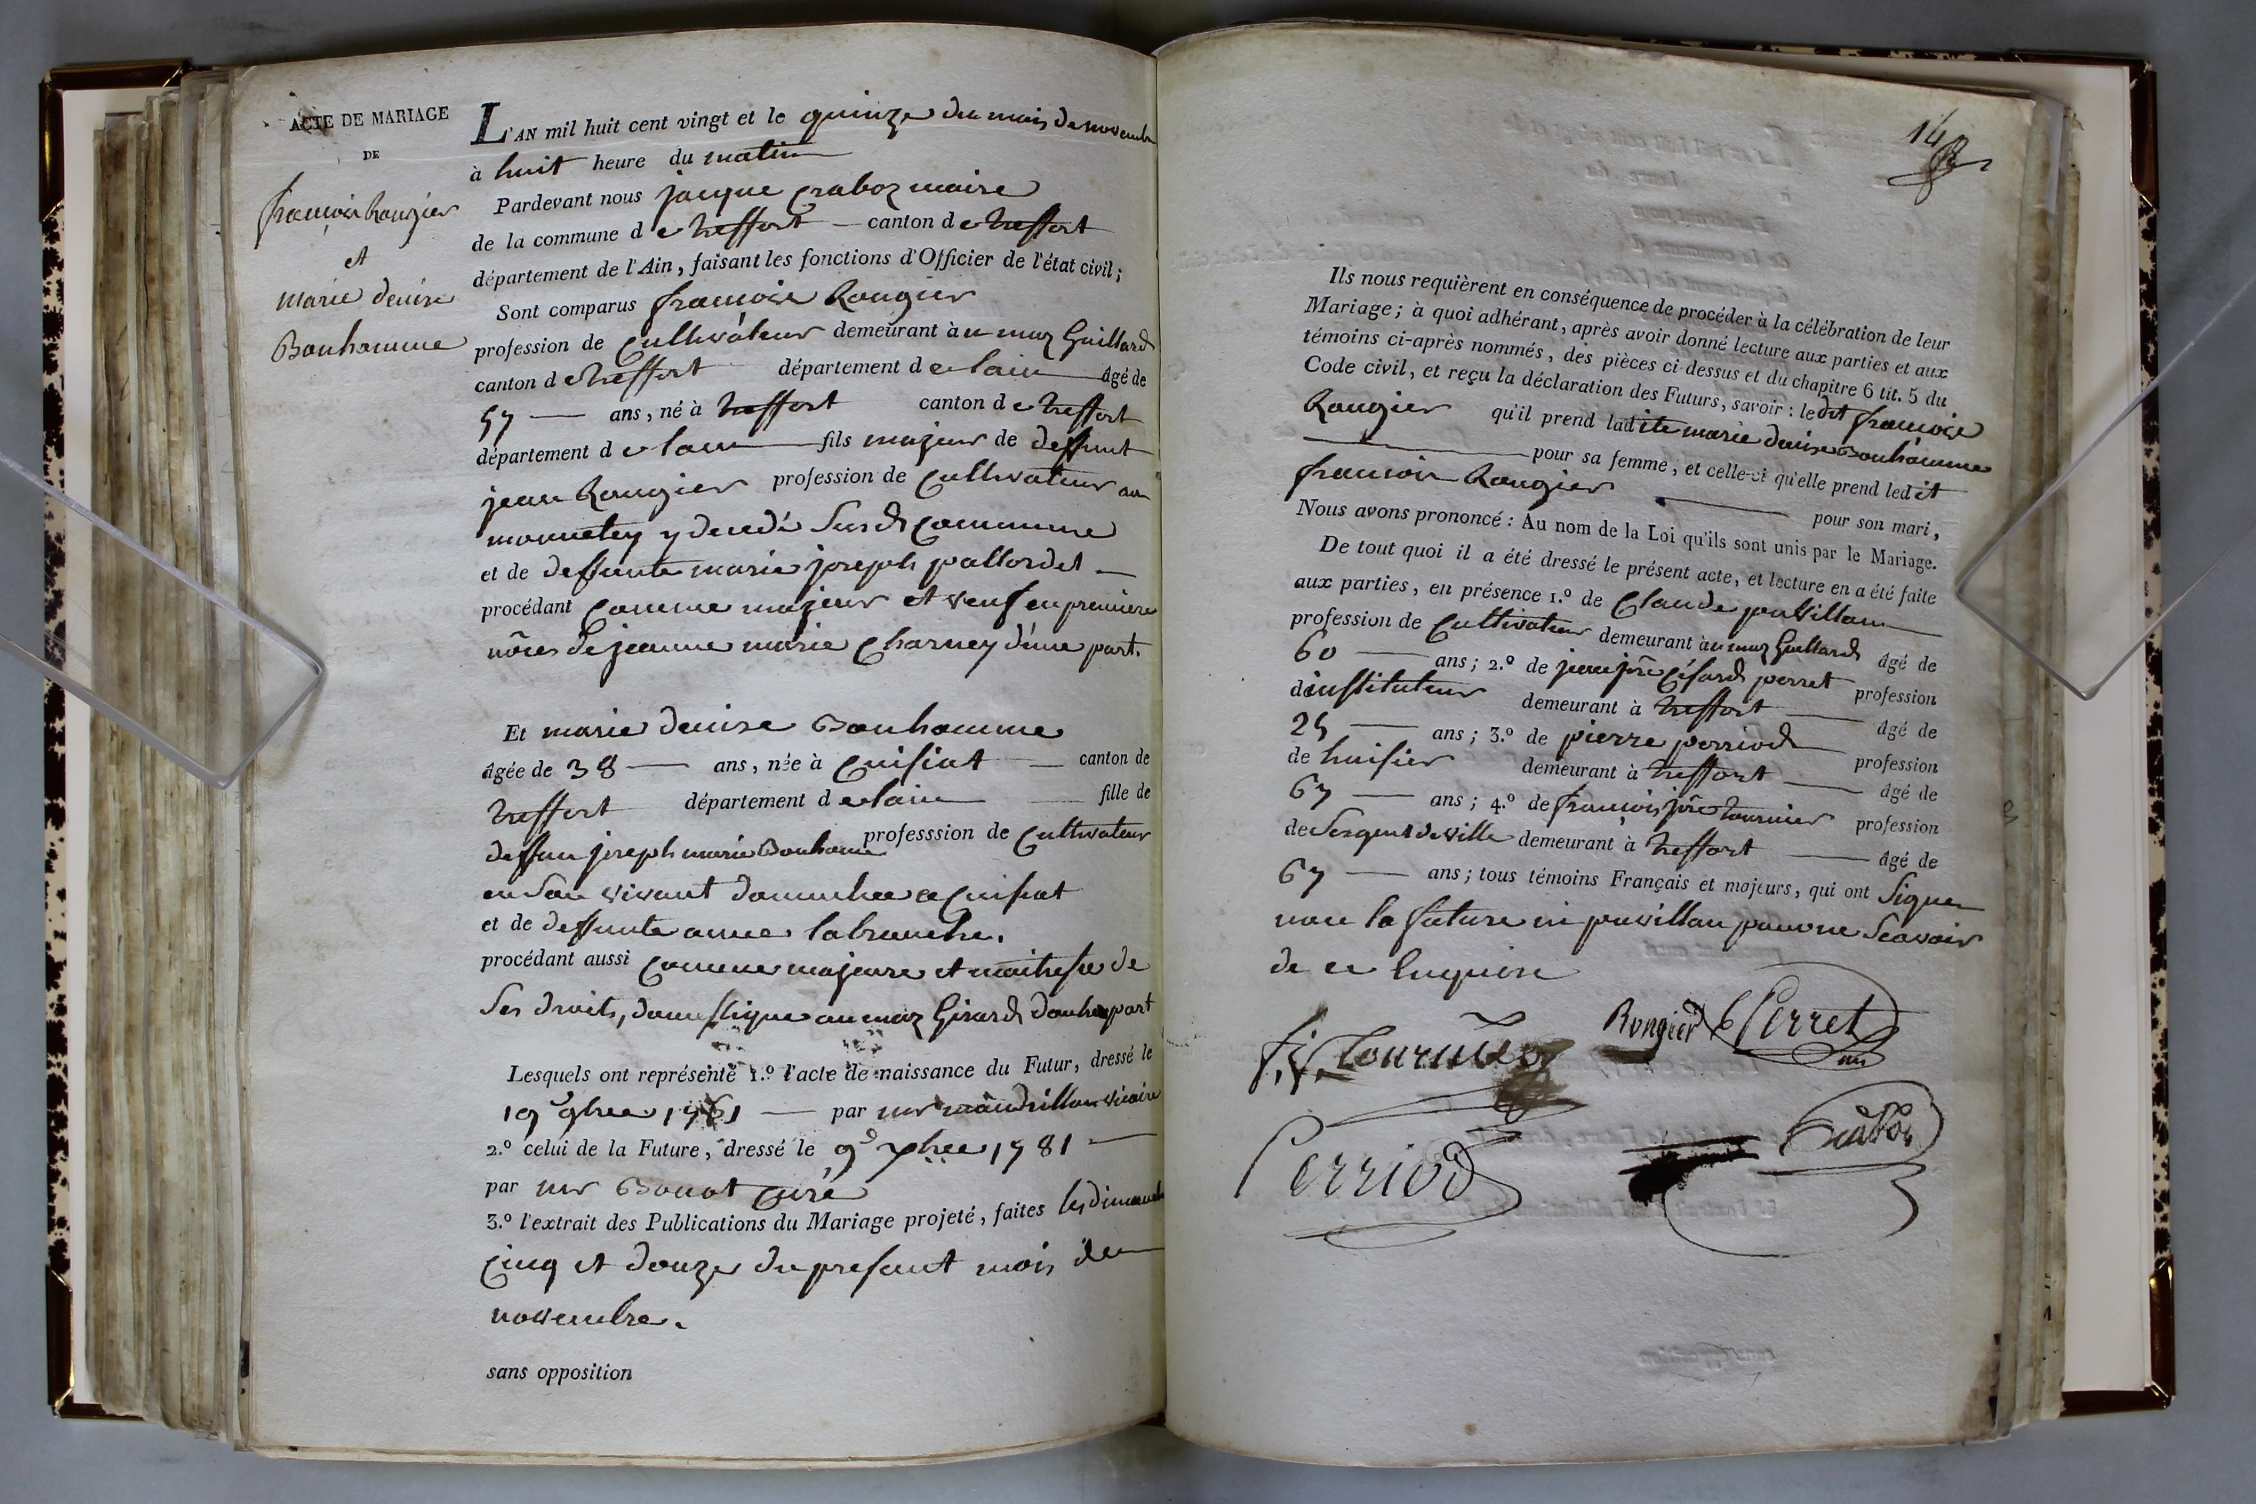 ACTE DE MARIAGE
DE
francois Rougier
et
marie denise
Bonhomme
L'AN mil huit cent vingt et le quinze du mois de novembre
à huit heure du matin
Pardevant nous jacque Craboz maire
de la commune de treffort canton de treffort
département de l'Ain, faisant les fonctions d'Officier de l'état civil;
Sont comparus francoise Rougier
profession de Cultivateur demeurant à au maz Guillard
canton de treffort département de lain âgé de
57 ans, né à treffort canton de treffort
département de lain fils majeur de deffunt
jean Rougier profession de Cultivateur au
monnetey y decedé Susd Commune
et de deffunte marie joseph pallordet
procédant Comme majeur et veuf en premiere
nôces de jeanne marie Charney d'une part.
Et marie denise Bonhomme
âgée de 38 ans, née à Cuisiat canton de
treffort département de lain fille de
deffun joseph marie Bonhome professsion de Cultivateur
en son vivant domicilié a Cuisiat
et de deffunte anne labranche.
procédant aussi Comme majeure et maitresse de
Ses droits, domestique au maz Girard d'autre part
Lesquels ont représenté 1.º l'acte de naissance du Futur, dressé le
19 9bre 1761 par mr mandrillon vicaire
2.º celui de la Future, dressé le 9d xbre 1781
par mr Bonot Curé
3.º l'extrait des Publications du Mariage projeté, faites les dimanche
Cinq et douze du present mois de
novembre.
sans opposition
148
Ils nous requièrent en conséquence de procéder à la célébration de leur
Mariage; à quoi adhérant, après avoir donné lecture aux parties et aux
témoins ci-après nommés, des pièces ci-dessus et du chapitre 6 tit. 5 du
Code civil, et reçu la déclaration des Futurs, savoir: ledit francoise
Rougier qu'il prend ladite marie denise Bonhomme
pour sa femme, et celle-ci qu'elle prend ledit
francois Rougier pour son mari,
Nous avons prononcé: Au nom de la Loi qu'ils sont unis par le Mariage.
De tout quoi il a été dressé le présent acte, et lecture en a été faite
aux parties, en présence 1.º de Claude puvillan
profession de Cultivateur demeurant à au maz Guillard âgé de
60 ans; 2.º de jean jph Césard perret profession
d'instituteur demeurant à treffort âgé de
25 ans; 3.º de pierre perriod profession
de huisier demeurant à treffort âgé de
67 ans; 4.º de françois jph tournier profession
de Sergent de ville demeurant à treffort âgé de
67 ans; tous témoins Français et majeurs, qui ont Signer
non la future ni puvillan pour ne Scavoir
de ce Enquire
f. j. Tournier Rougier C Perret
Perriod Craboz